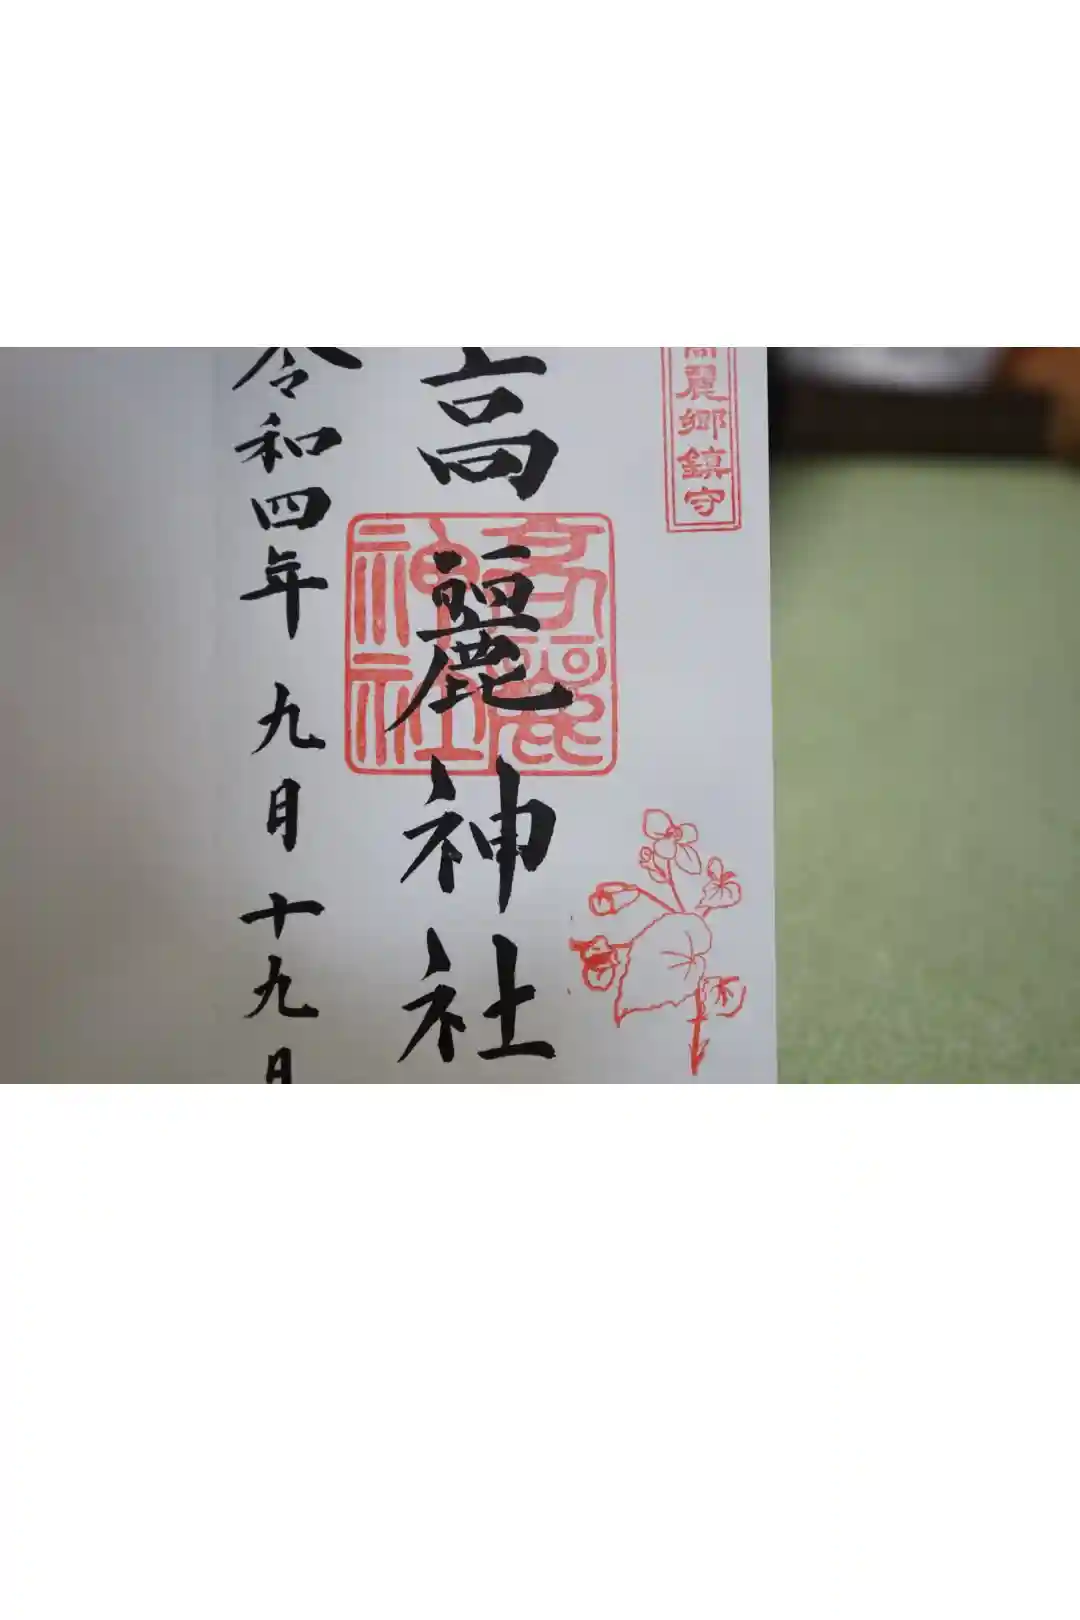 高麗郷鎮守
高麗神社
高麗神社
令和四年九月十九日